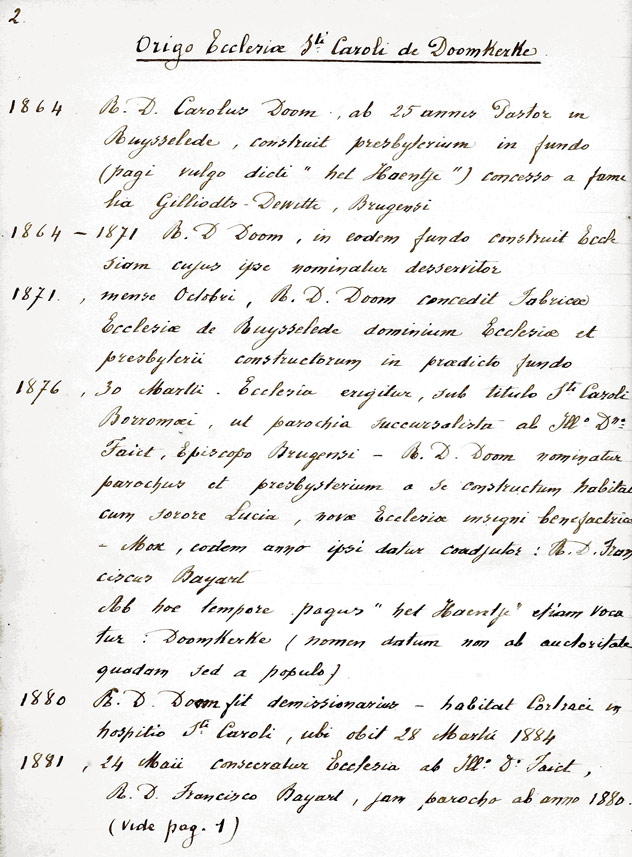 2.
Origo Ecclesiæ Sti Caroli de Doomkerke
1864 R. D. Carolus Doom, ab 25 annis Pastor in
Ruysselede, construit presbyterium in fundo
(pagi vulgo dicti "het Haentje") concesso a fami
lia Gilliodts-Dewitte, Brugensi
1864 - 1871 R. D Doom, in eodem fundo construit Eccle
siam cujus ipse nominatur desservitor
1871. , mense Octobri, R. D. Doom concedit Fabricæ
Ecclesiæ de Ruysselede dominium Ecclesiæ et
presbyterii constructorum in prædicto fundo
1876 , 30 Martii. Ecclesia erigitur, sub titulo Sti Caroli
Borromæi, ut parochia succursalista ab Illo Dno
Faict, Episcopo Brugensi - R. D. Doom nominatur
parochus et presbysterium a se constructum habitat
cum sorore Lucia, novæ Ecclesiæ insigni benefactrice
- Mox, eodem anno ipsi datur coadjutor: R. D. Fran
ciscus Bayart
Ab hoc tempore pagus "het Haentje" etiam voca
tur: Doomkerke (nomen datum non ab auctoritate
quadam sed a populo)
1880 R. D. Doom fit demissionarius - habitat Cortraci in
hospitio Sti Caroli, ubi obit 28 Martii 1884
1881 , 24 Maii consecratur Ecclesia ab Illo Do Faict,
R. D. Francisco Bayart, jam parocho ab anno 1880.
(vide pag. 1)